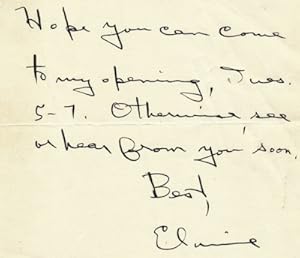 Hope you can come
to my opening, Tues.
5-7. Otherwise, see
or hear from you soon.
Best,
Elaine